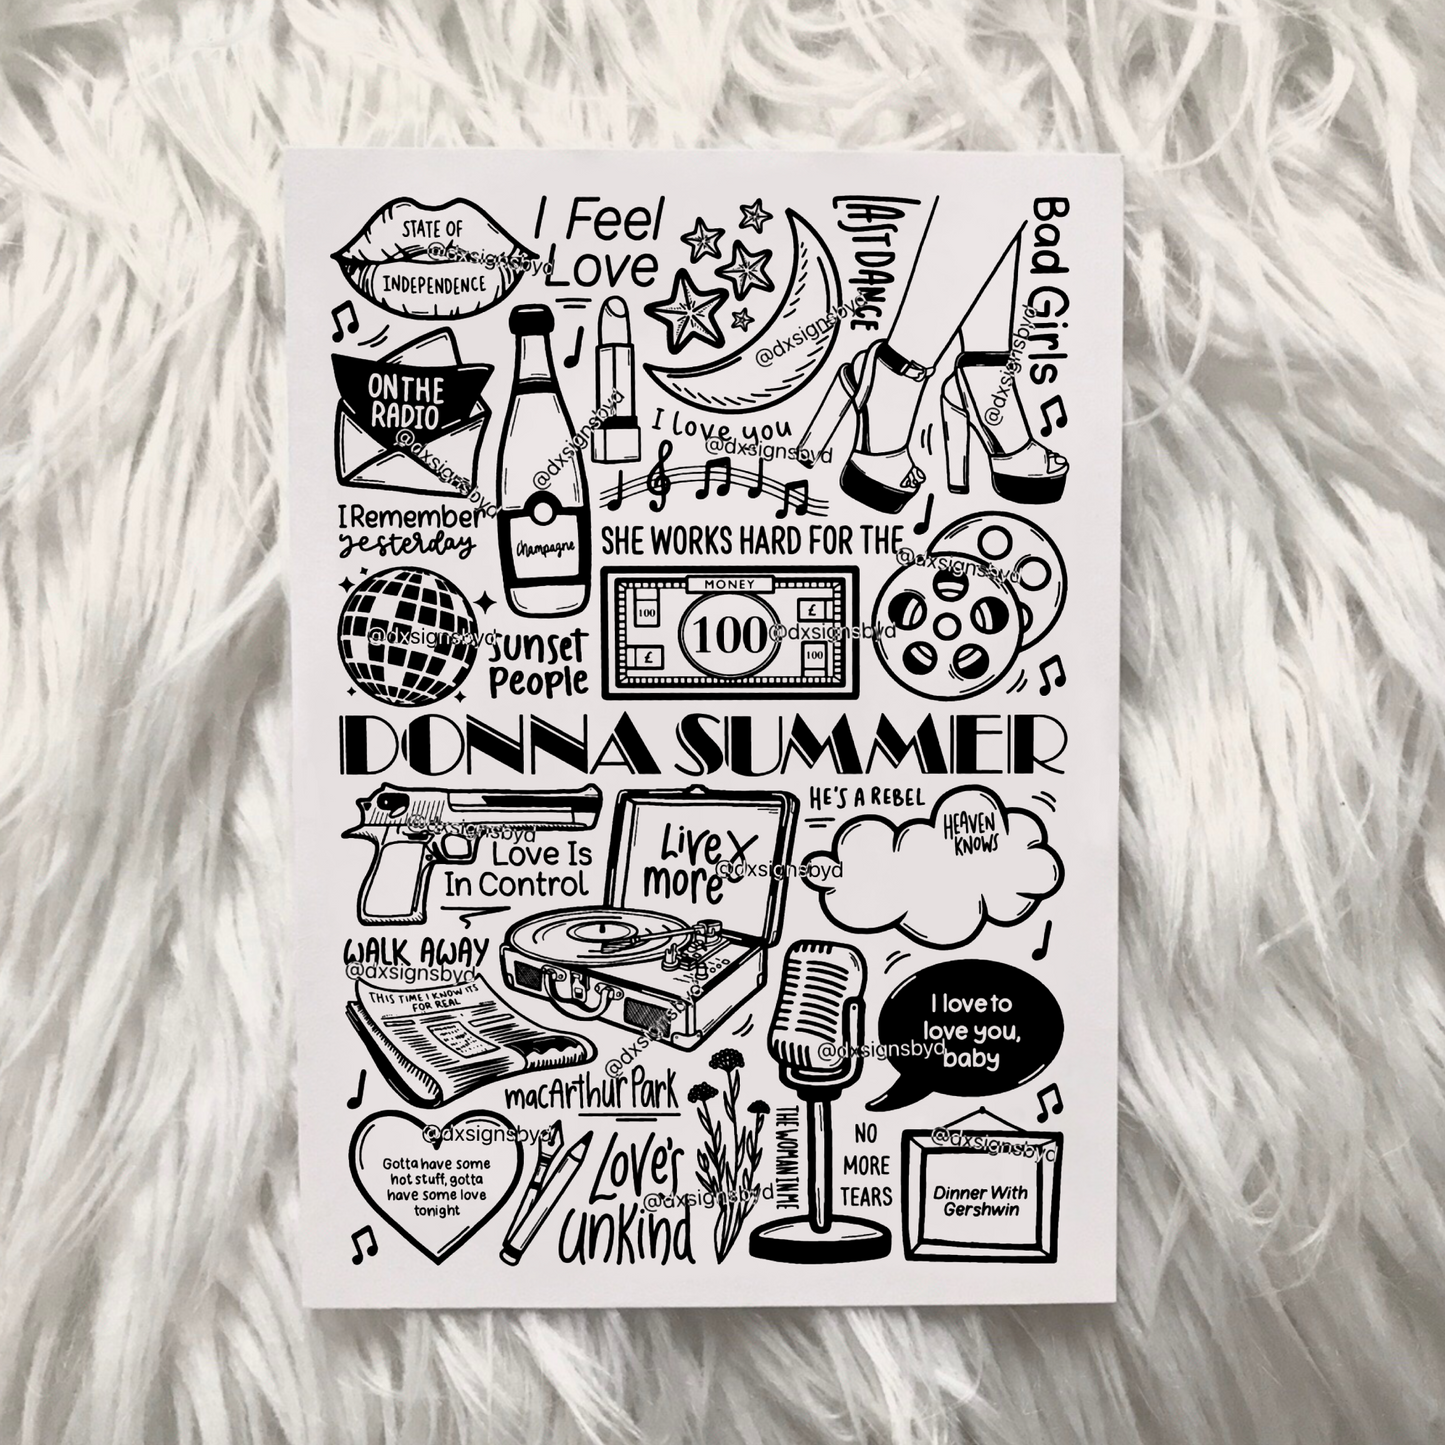 STATE OF
INDEPENDENCE
@dxsignsbyd
I Feel
Love
LAST DANCE
Bad Girls
@dxsignsbyd
@dxsignsbyd
ON THE
RADIO
@dxsignsbyd
@dxsignsbyd
I love you
@dxsignsbyd
I Remember
yesterday
Champagne
SHE WORKS HARD FOR THE
@dxsignsbyd
MONEY
100
£
100
£
100
@dxsignsbyd
@dxsignsbyd
Sunset
People
DONNA SUMMER
@dxsignsbyd
Love Is
In Control
Live
more
@dxsignsbyd
HE'S A REBEL
HEAVEN
KNOWS
WALK AWAY
@dxsignsbyd
THIS TIME I KNOW ITS
FOR REAL
@dxsignsbyd
I love to
love you,
baby
@dxsignsbyd
macArthur Park
@dxsignsbyd
Gotta have some
hot stuff, gotta
have some love
tonight
Love's
unkind
@dxsignsbyd
THE WOMAN IN ME
NO
MORE
TEARS
@dxsignsbyd
Dinner With
Gershwin